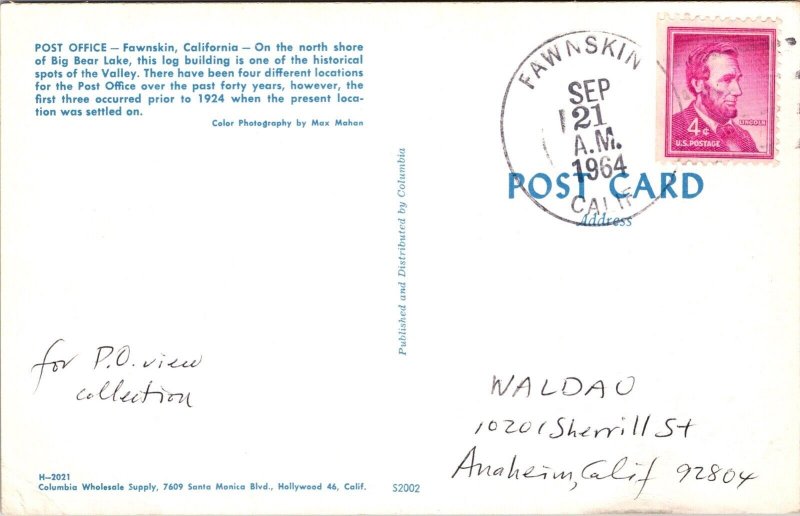 POST OFFICE — Fawnskin, California — On the north shore
of Big Bear Lake, this log building is one of the historical
spots of the Valley. There have been four different locations
for the Post Office over the past forty years, however, the
first three occurred prior to 1924 when the present loca-
tion was settled on.
Color Photography by Max Mahan
for P.O. view
collection
H-2021
Columbia Wholesale Supply, 7609 Santa Monica Blvd., Hollywood 46, Calif.
S2002
Published and Distributed by Columbia
FAWNSKIN
SEP
21
A.M.
1964
CALIF
LINCOLN
4¢
U.S. POSTAGE
POST CARD
Address
WALDAO
10201 Sherrill St
Anaheim, Calif 92804